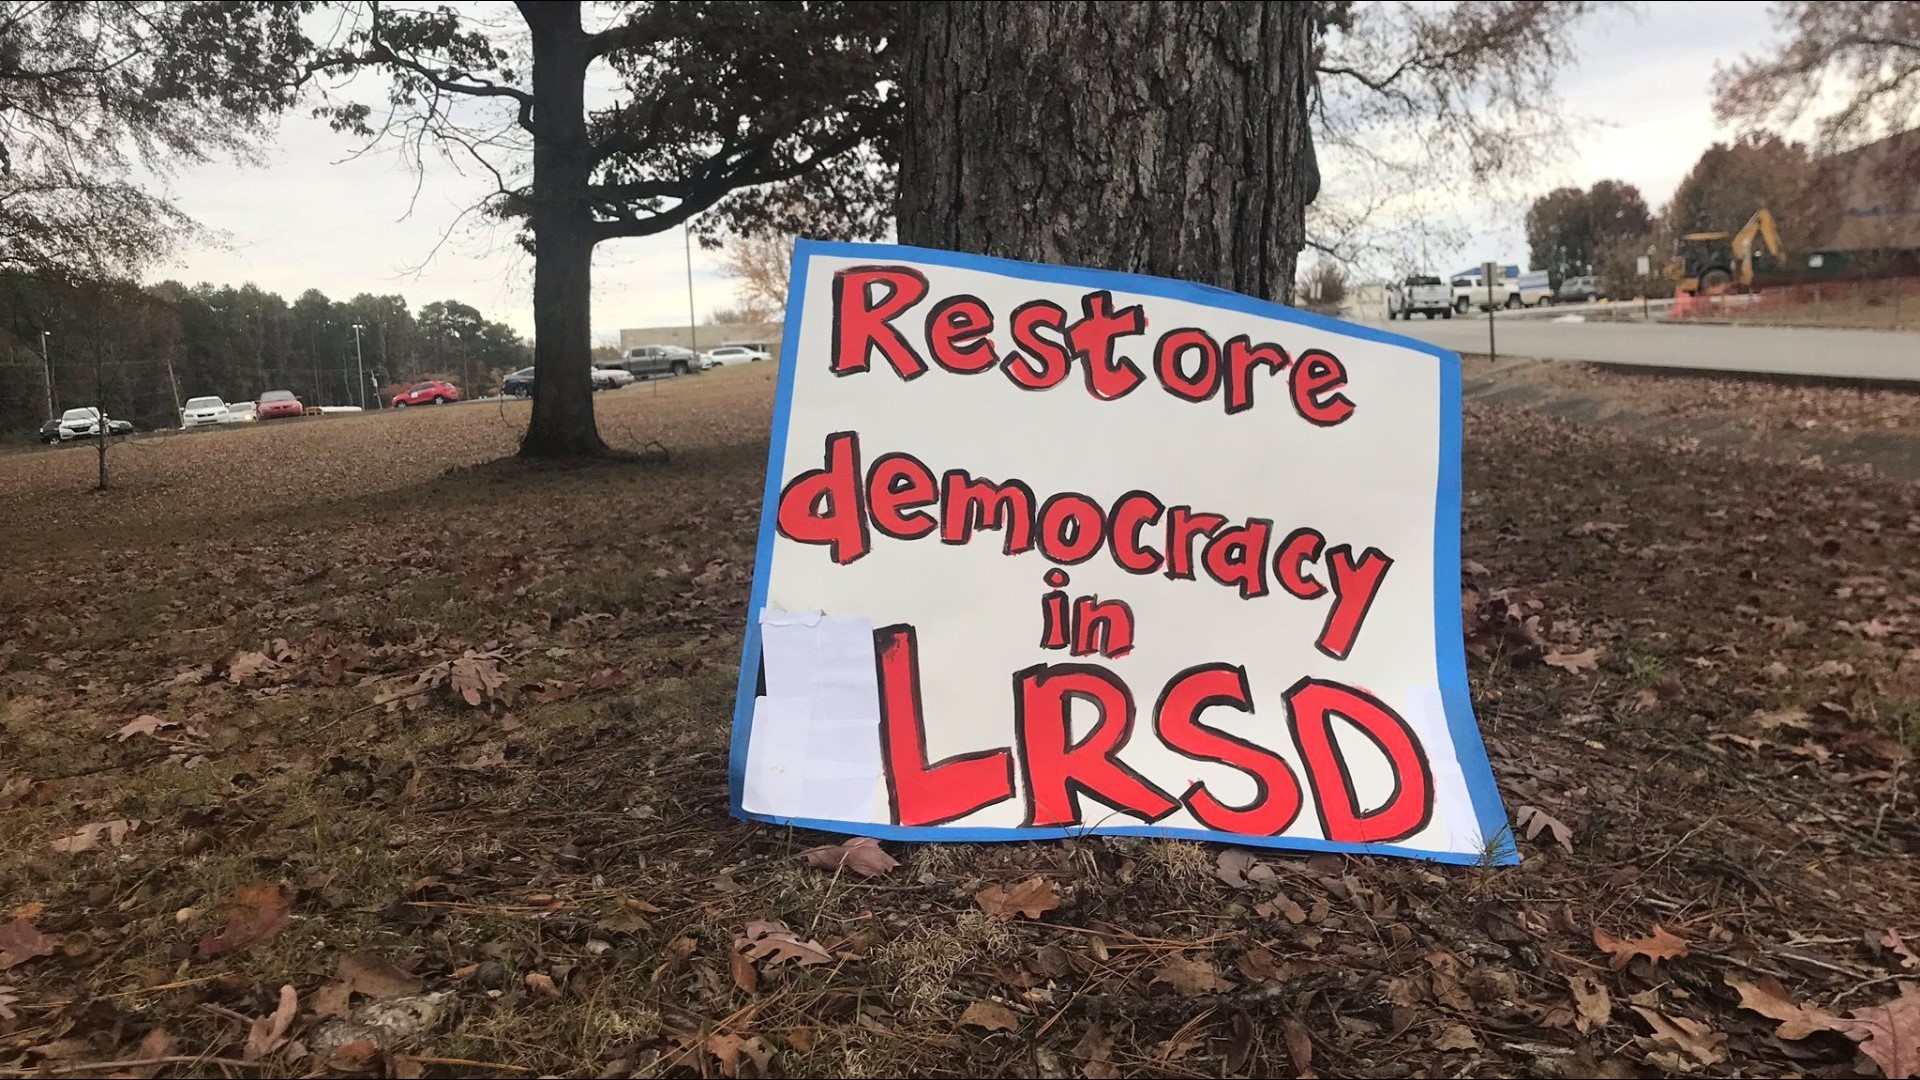 Restore
democracy
in
LRSD